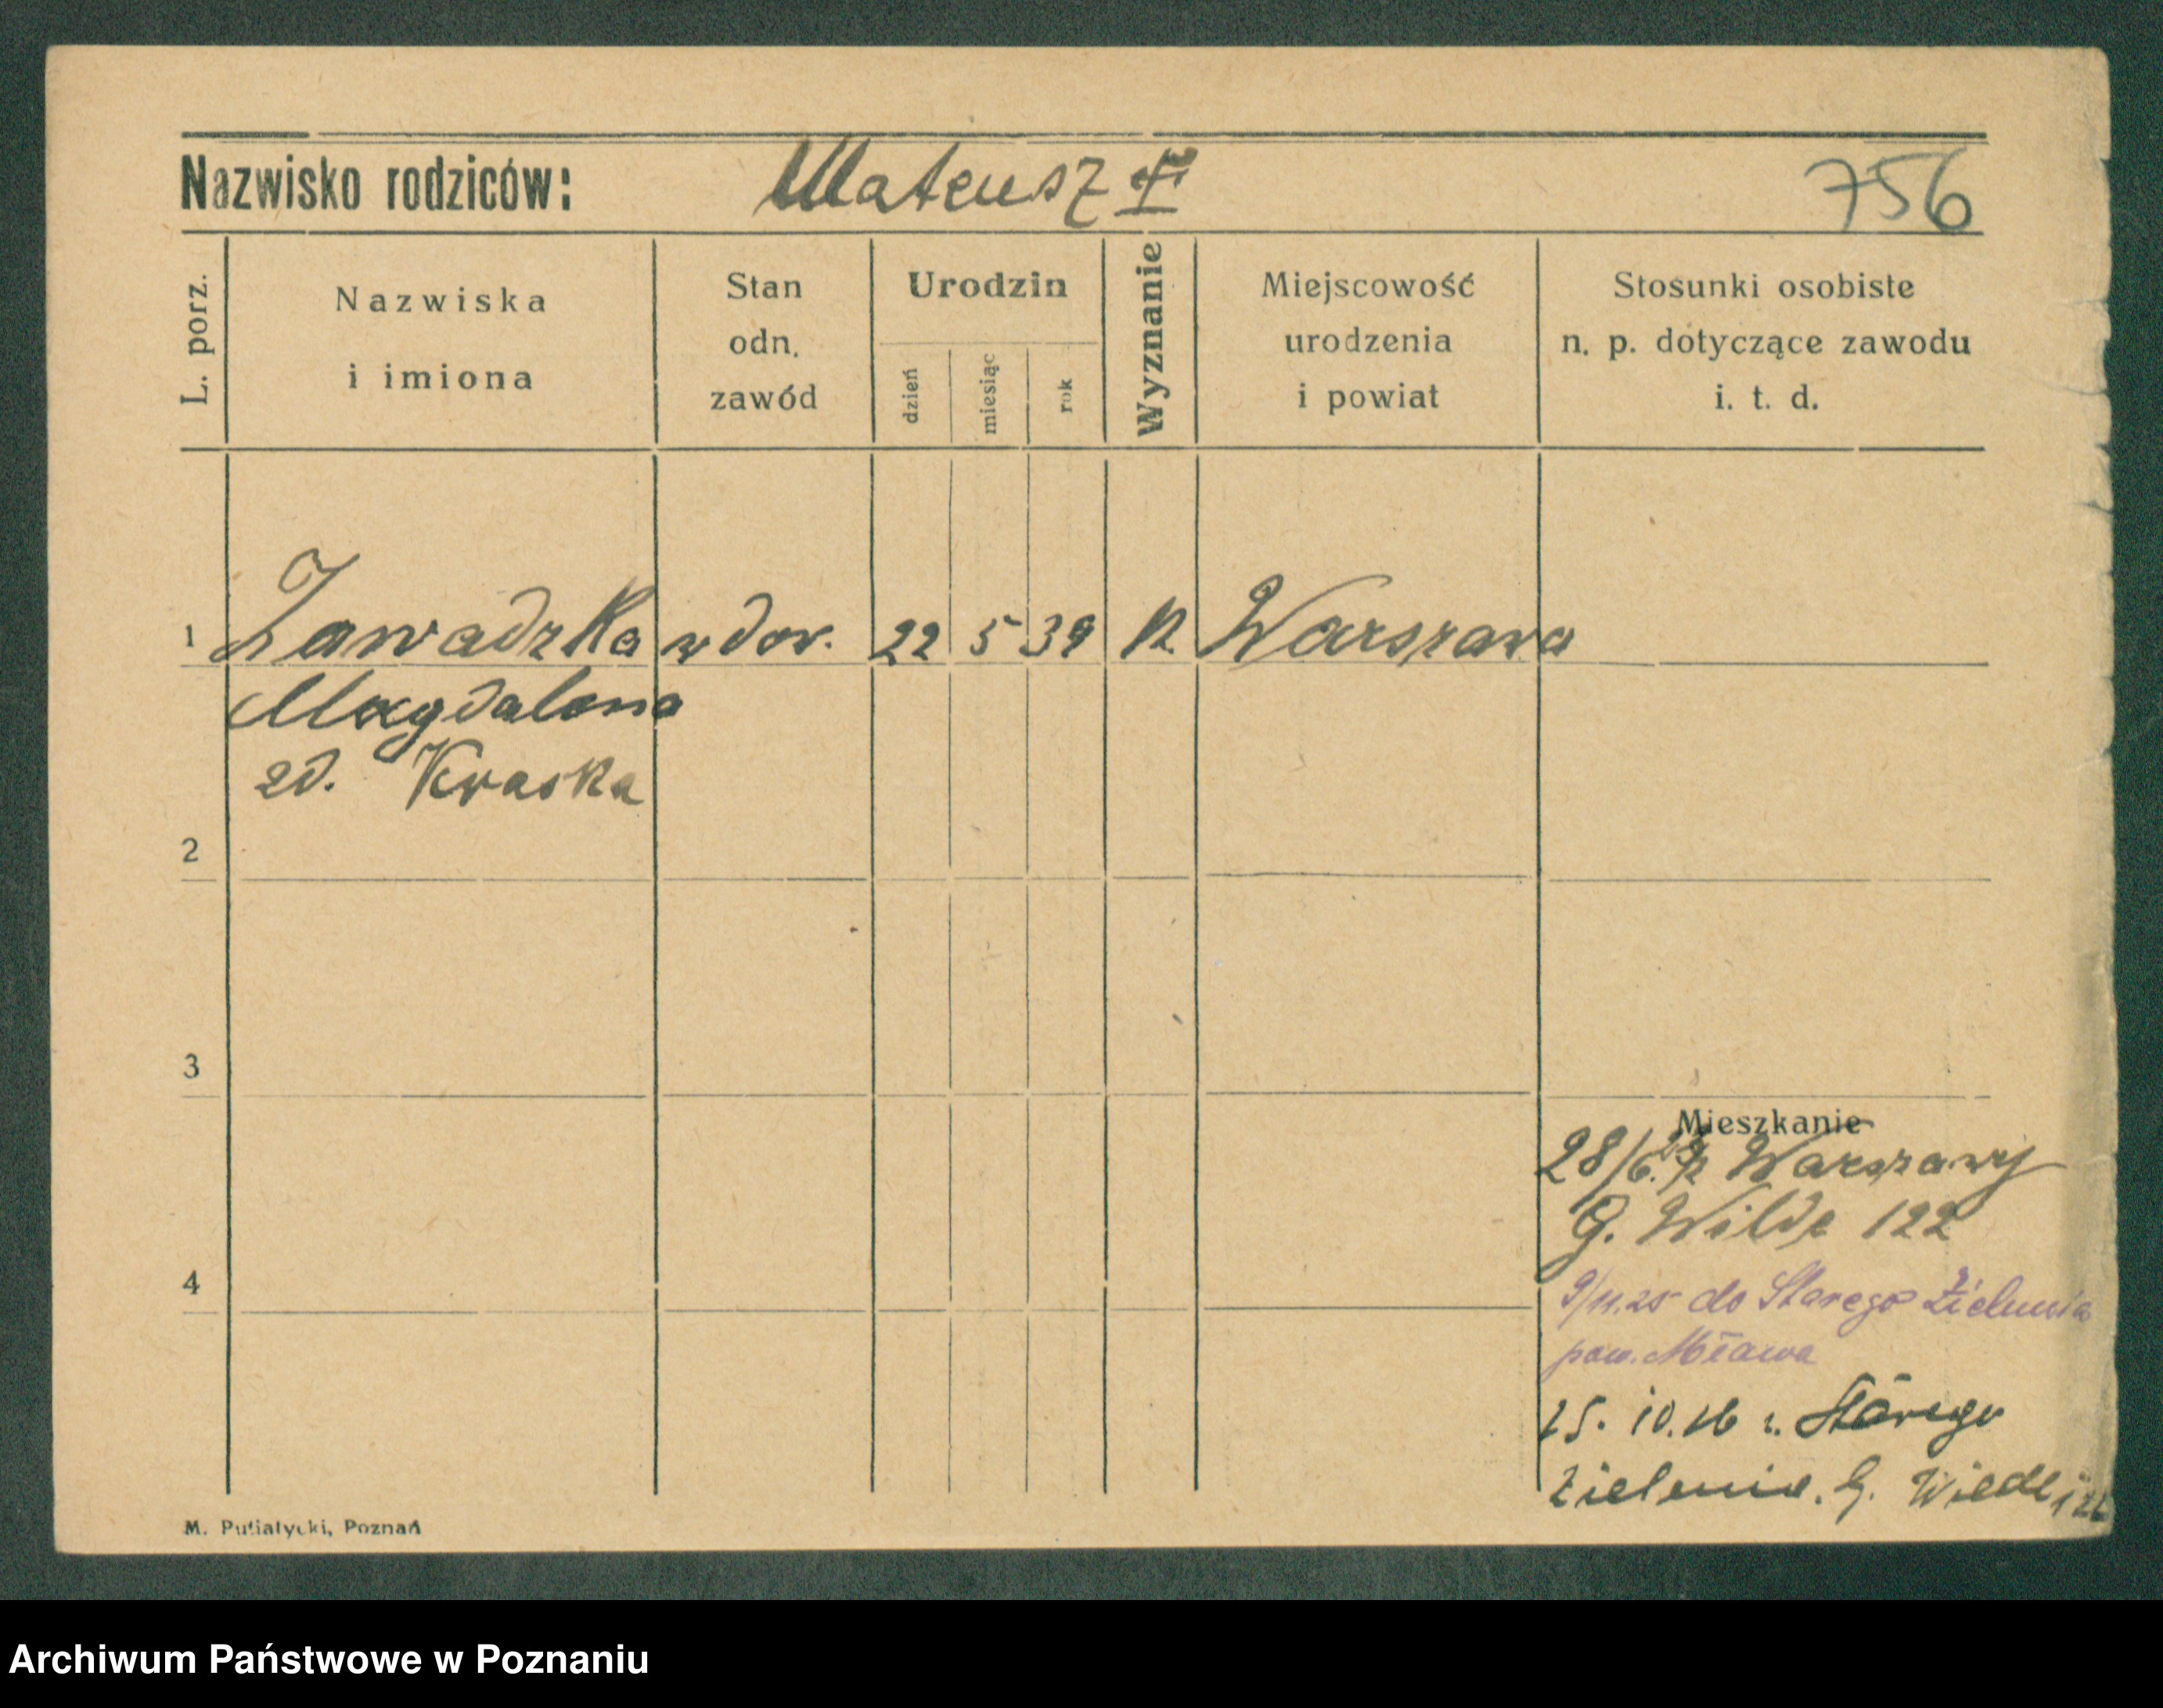 Nazwisko rodziców: Mateusz 756
L. porz.
Nazwiska
i imiona
Stan
odn.
zawód
Urodzin
dzień
miesiąc
rok
Wyznanie
Miejscowość
urodzenia
i powiat
Stosunki osobiste
n. p. dotyczące zawodu
i. t. d.
1 Zawadzka wdow. 22 5 39 k. Warszawa
Magdalena
zd. Kraska
2
3
Mieszkanie
28/6. z Warszawy
G. Wilda 122
4
9/11.25 do Starego
pow. Mława
25. 10. 26 z. Starego
G.
M. Putiatycki, Poznań
Archiwum Państwowe w Poznaniu